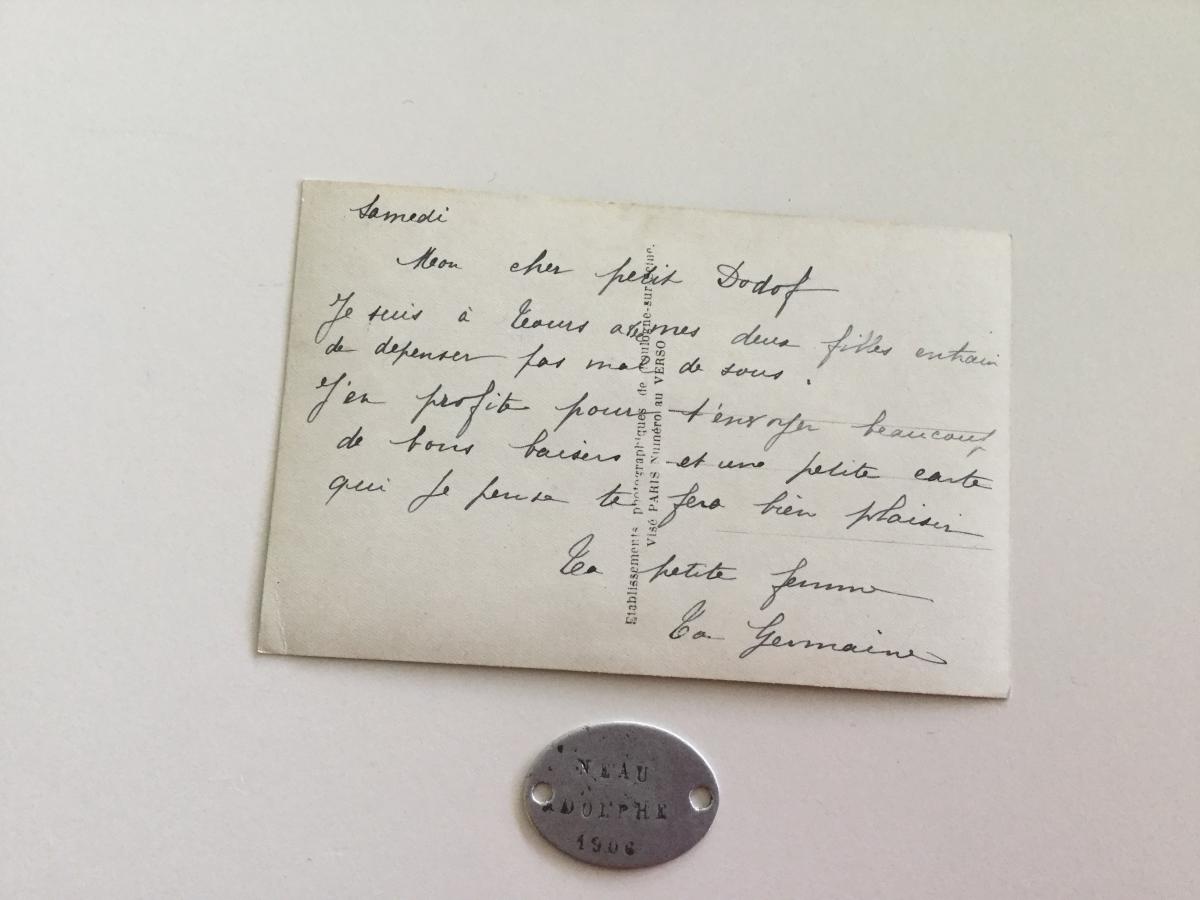 Samedi
Mon cher petit Dodof
Je suis à Tours avec mes deux filles entrain
de depenser pas mal de sous.
J'en profite pour t'envoyer beaucoup
de bons baisers et une petite carte
qui je pense te fera bien plaisir
Ta petite femme
Ta Germaine
Etablissements photographiques de Boulogne-sur-Seine.
Visé PARIS Numéro au VERSO
NEAU
ADOLPHE
1906